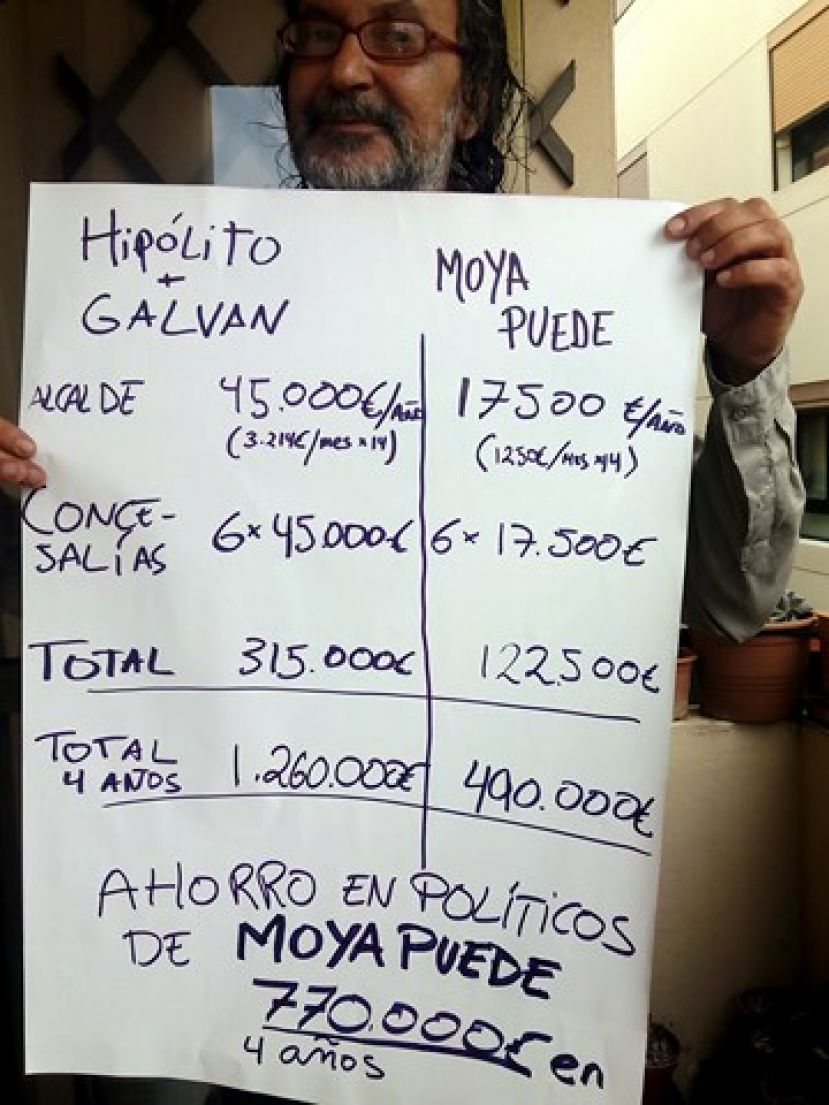 HIPÓLITO
+
GALVAN
MOYA
PUEDE
ALCALDE 45.000€/AÑO 17500 €/AÑO
(3.214€/mes x 14) (1250€/mes x14)
CONCE-
SALÍAS 6x45.000€ 6x 17.500€
TOTAL 315.000€ 122.500€
TOTAL
4 AÑOS 1.260.000€ 490.000€
AHORRO EN POLÍTICOS
DE MOYA PUEDE
770.000€ en
4 años